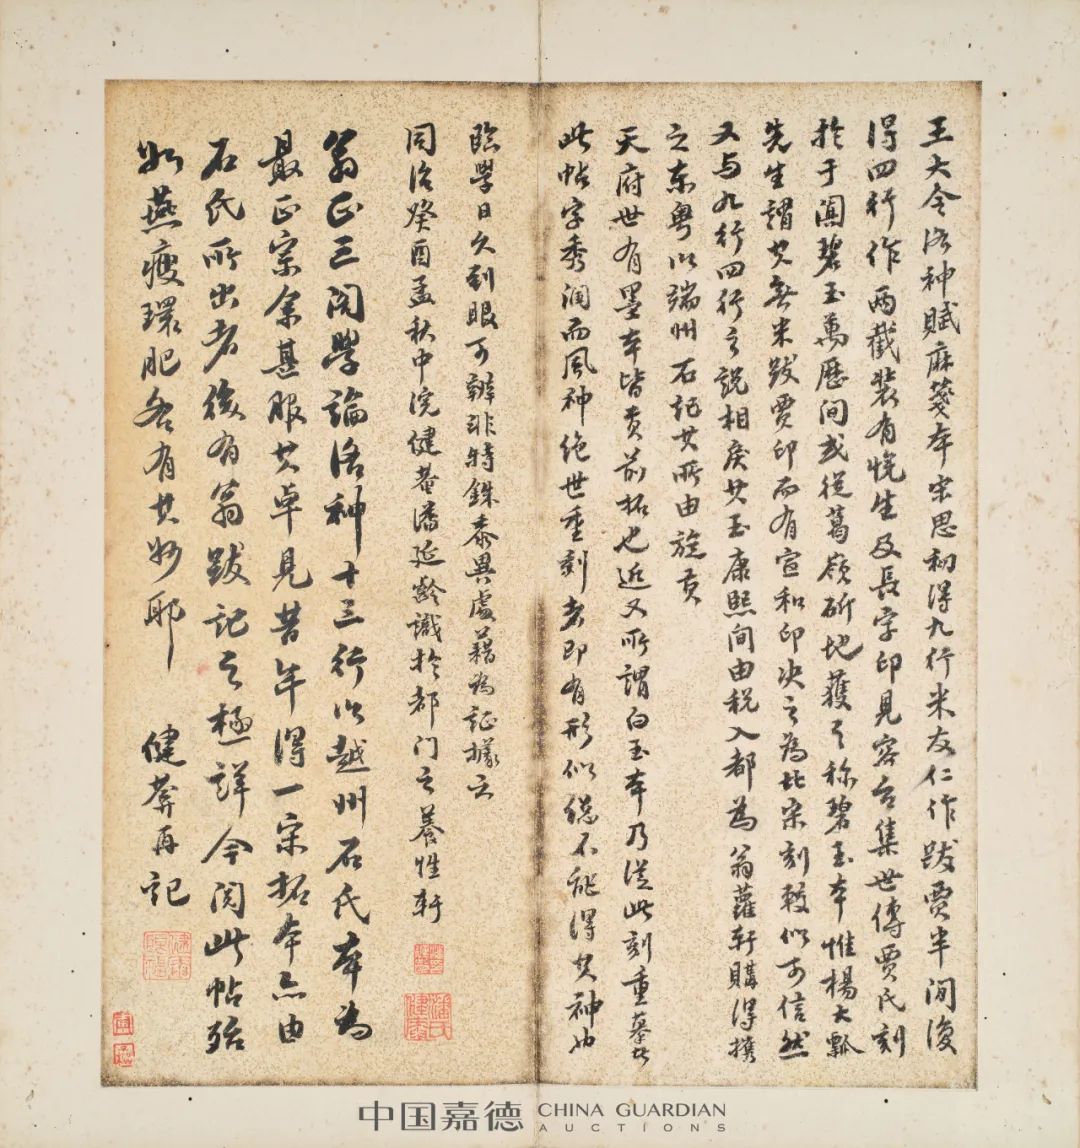 王大令洛神賦麻箋本宋思初得九行米友仁作跋賈半閒復
得四行作兩截裝有悅生及長字印見容台集世傳賈氏刻
於于闐碧玉萬歷間或從葛嶺斫地獲之稱碧玉本惟楊大瓢
先生謂其無米跋賈印而有宣和印決之為北宋刻較似可信然
又与九行四行之說相戾其玉康熙間由税入都為翁蘿軒購得攜
之東粤以端州石記其所由旋貢
天府世有墨本皆貢前拓也近又所謂白玉本乃從此刻重摹者
此帖字秀潤而風神绝世重刻者即有形似總不能得其神也
臨學日久到眼可辨非特銖黍異處藉為証據云
同治癸酉孟秋中浣健菴潘延齡識於都门之養性軒
翁正三阁學論洛神十三行以越州石氏本為
最正宗余甚服其卓見昔年得一宋拓本亦由
石氏所出者後有翁跋記之極詳今阅此帖殆
如燕瘦環肥各有其妙耶
健菴再記
中国嘉德 CHINA GUARDIAN
AUCTIONS